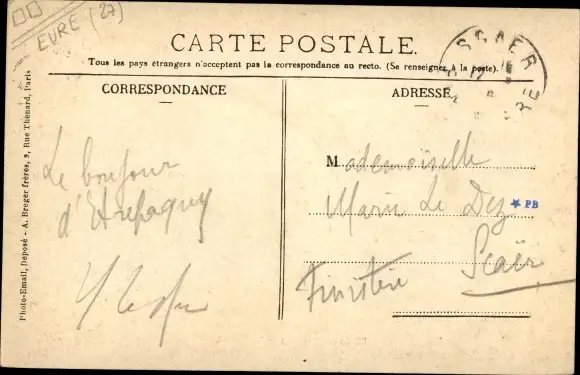 EURE (27)
CARTE POSTALE.
Tous les pays étrangers n'acceptent pas la correspondance au recto. (Se renseigner à la poste).
SCAER
CORRESPONDANCE
ADRESSE
Le bonjour
d'Etrepagny
Mademoiselle
Marie Le Dez
★ PB
Scaër
Finistère
Photo-Email, Déposé - A. Breger frères, 9, Rue Thenard, Paris